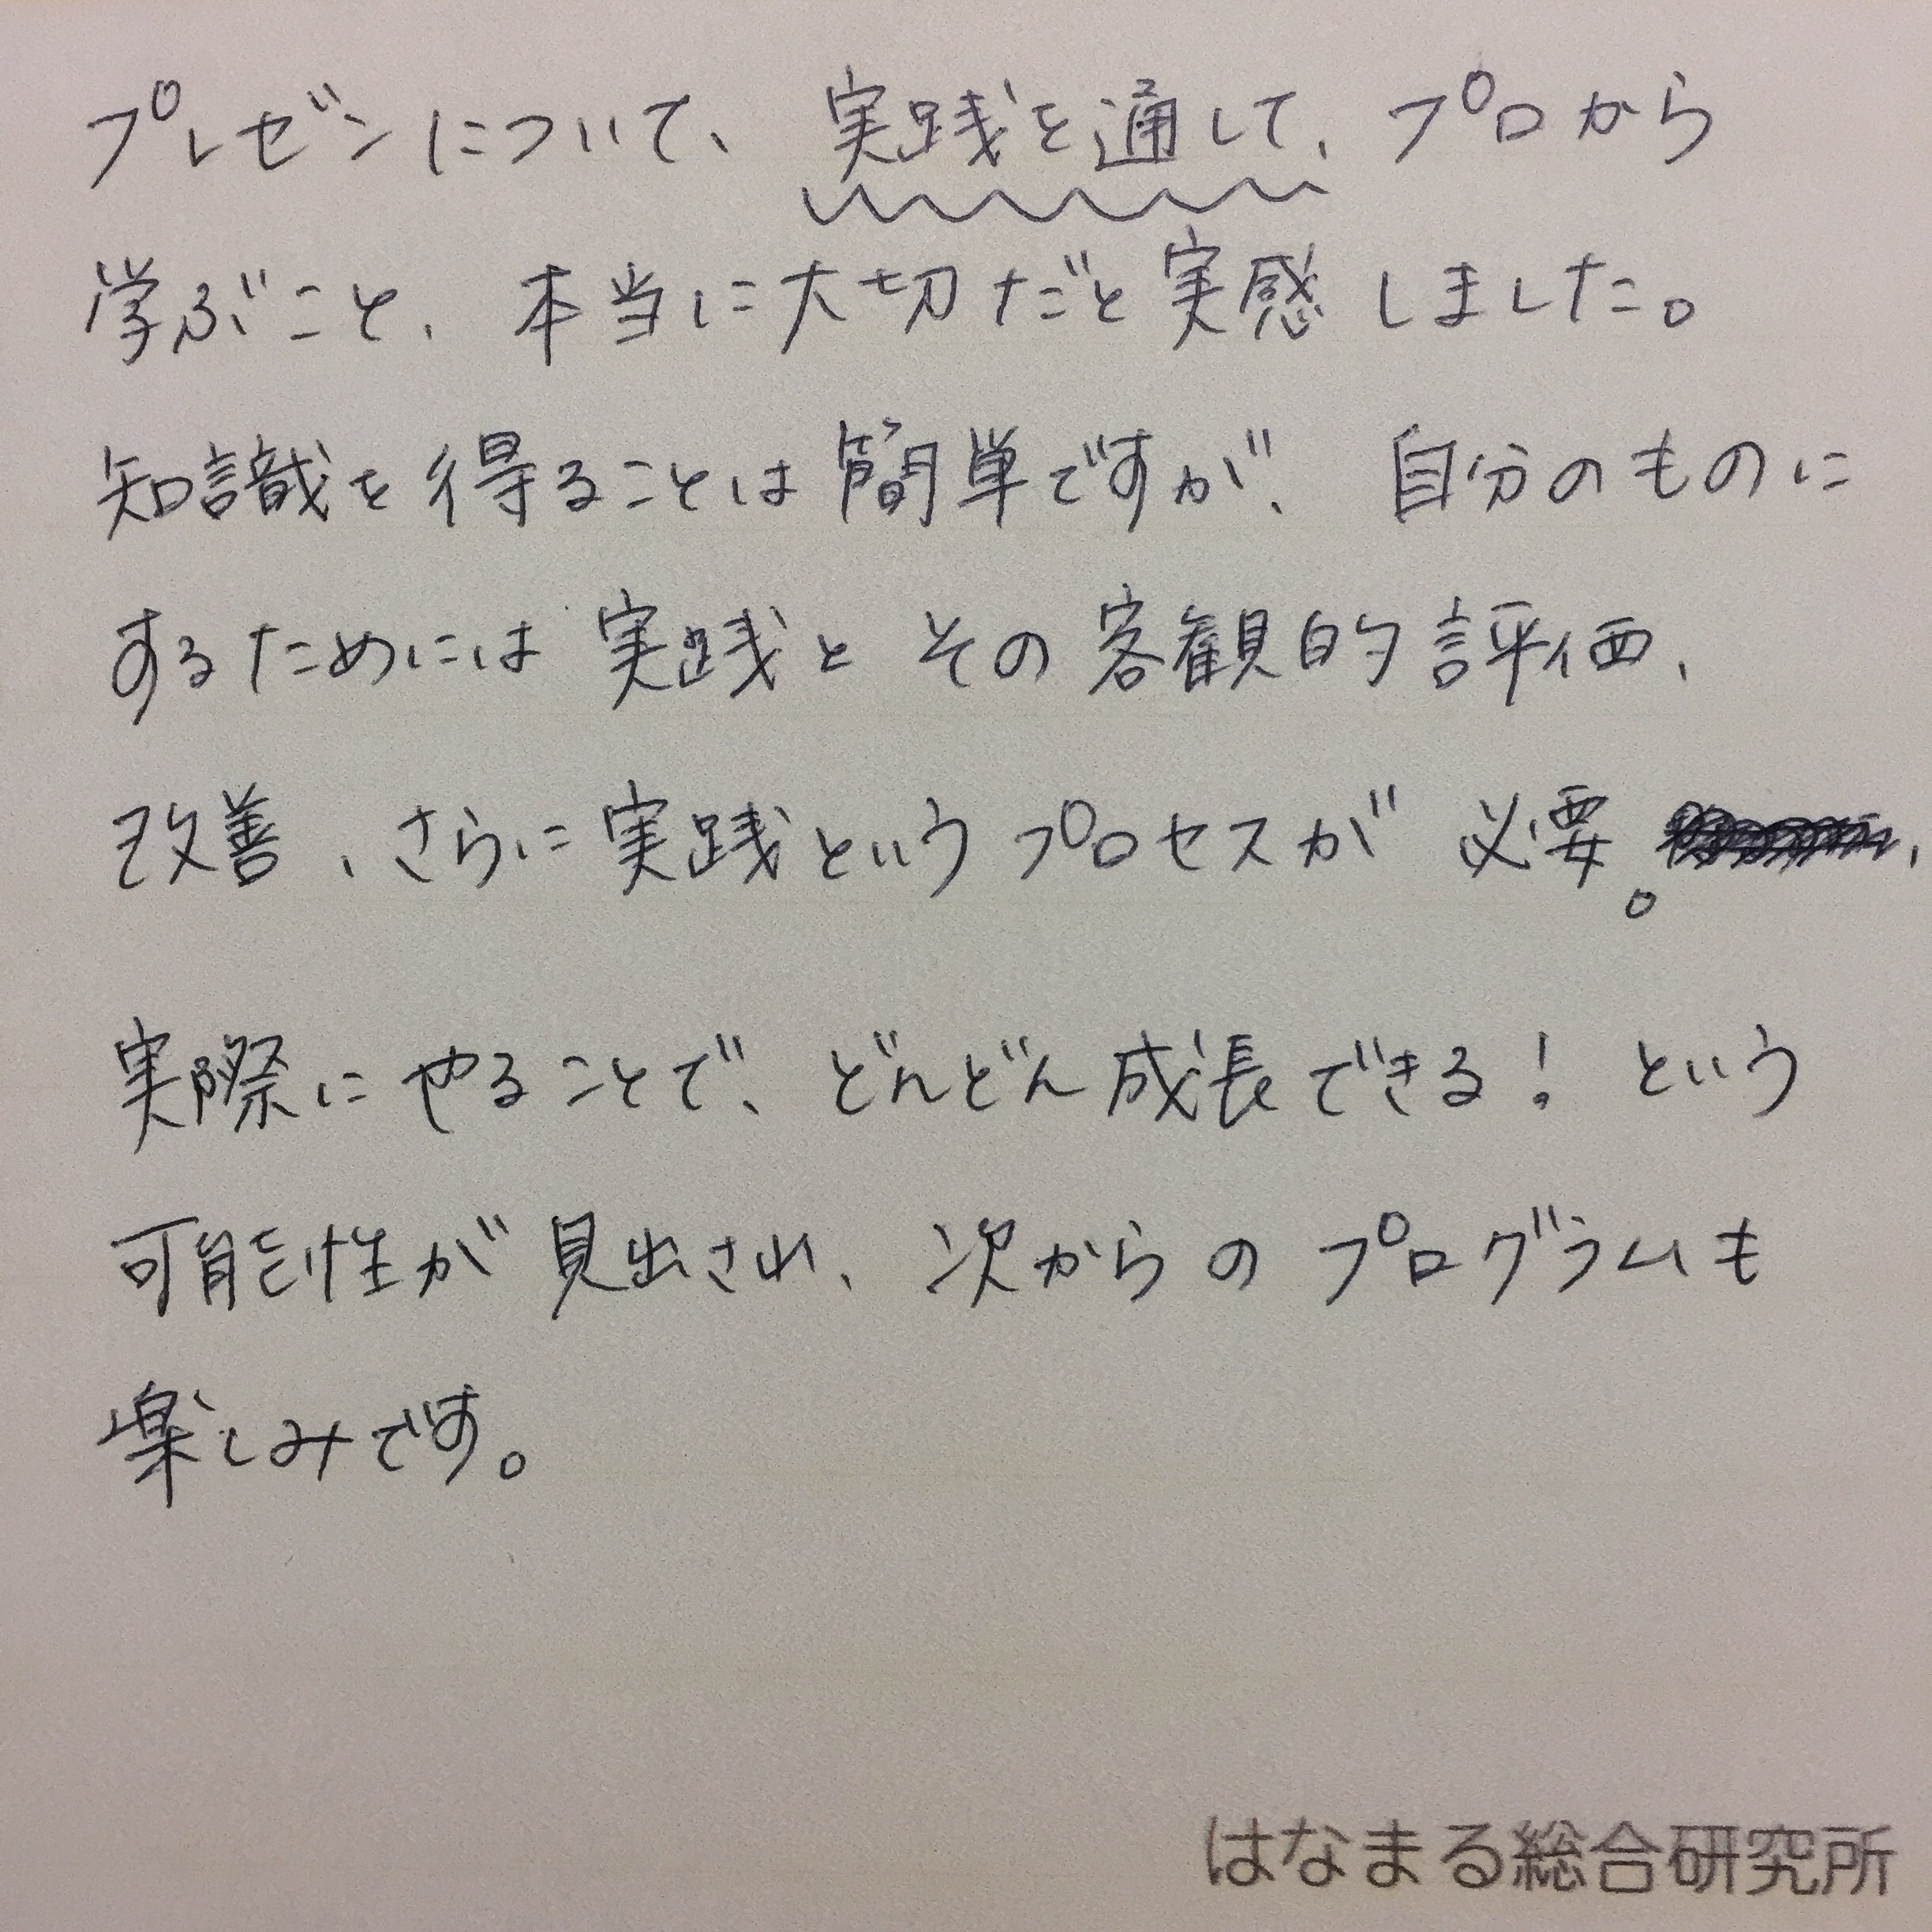 プレゼンについて、実践を通して、プロから
学ぶこと、本当に大切だと実感しました。
知識を得ることは簡単ですが、自分のものに
するためには実践とその客観的評価、
改善、さらに実践というプロセスが必要。
実際にやることで、どんどん成長できる！という
可能性が見出され、次からのプログラムも
楽しみです。
はなまる総合研究所